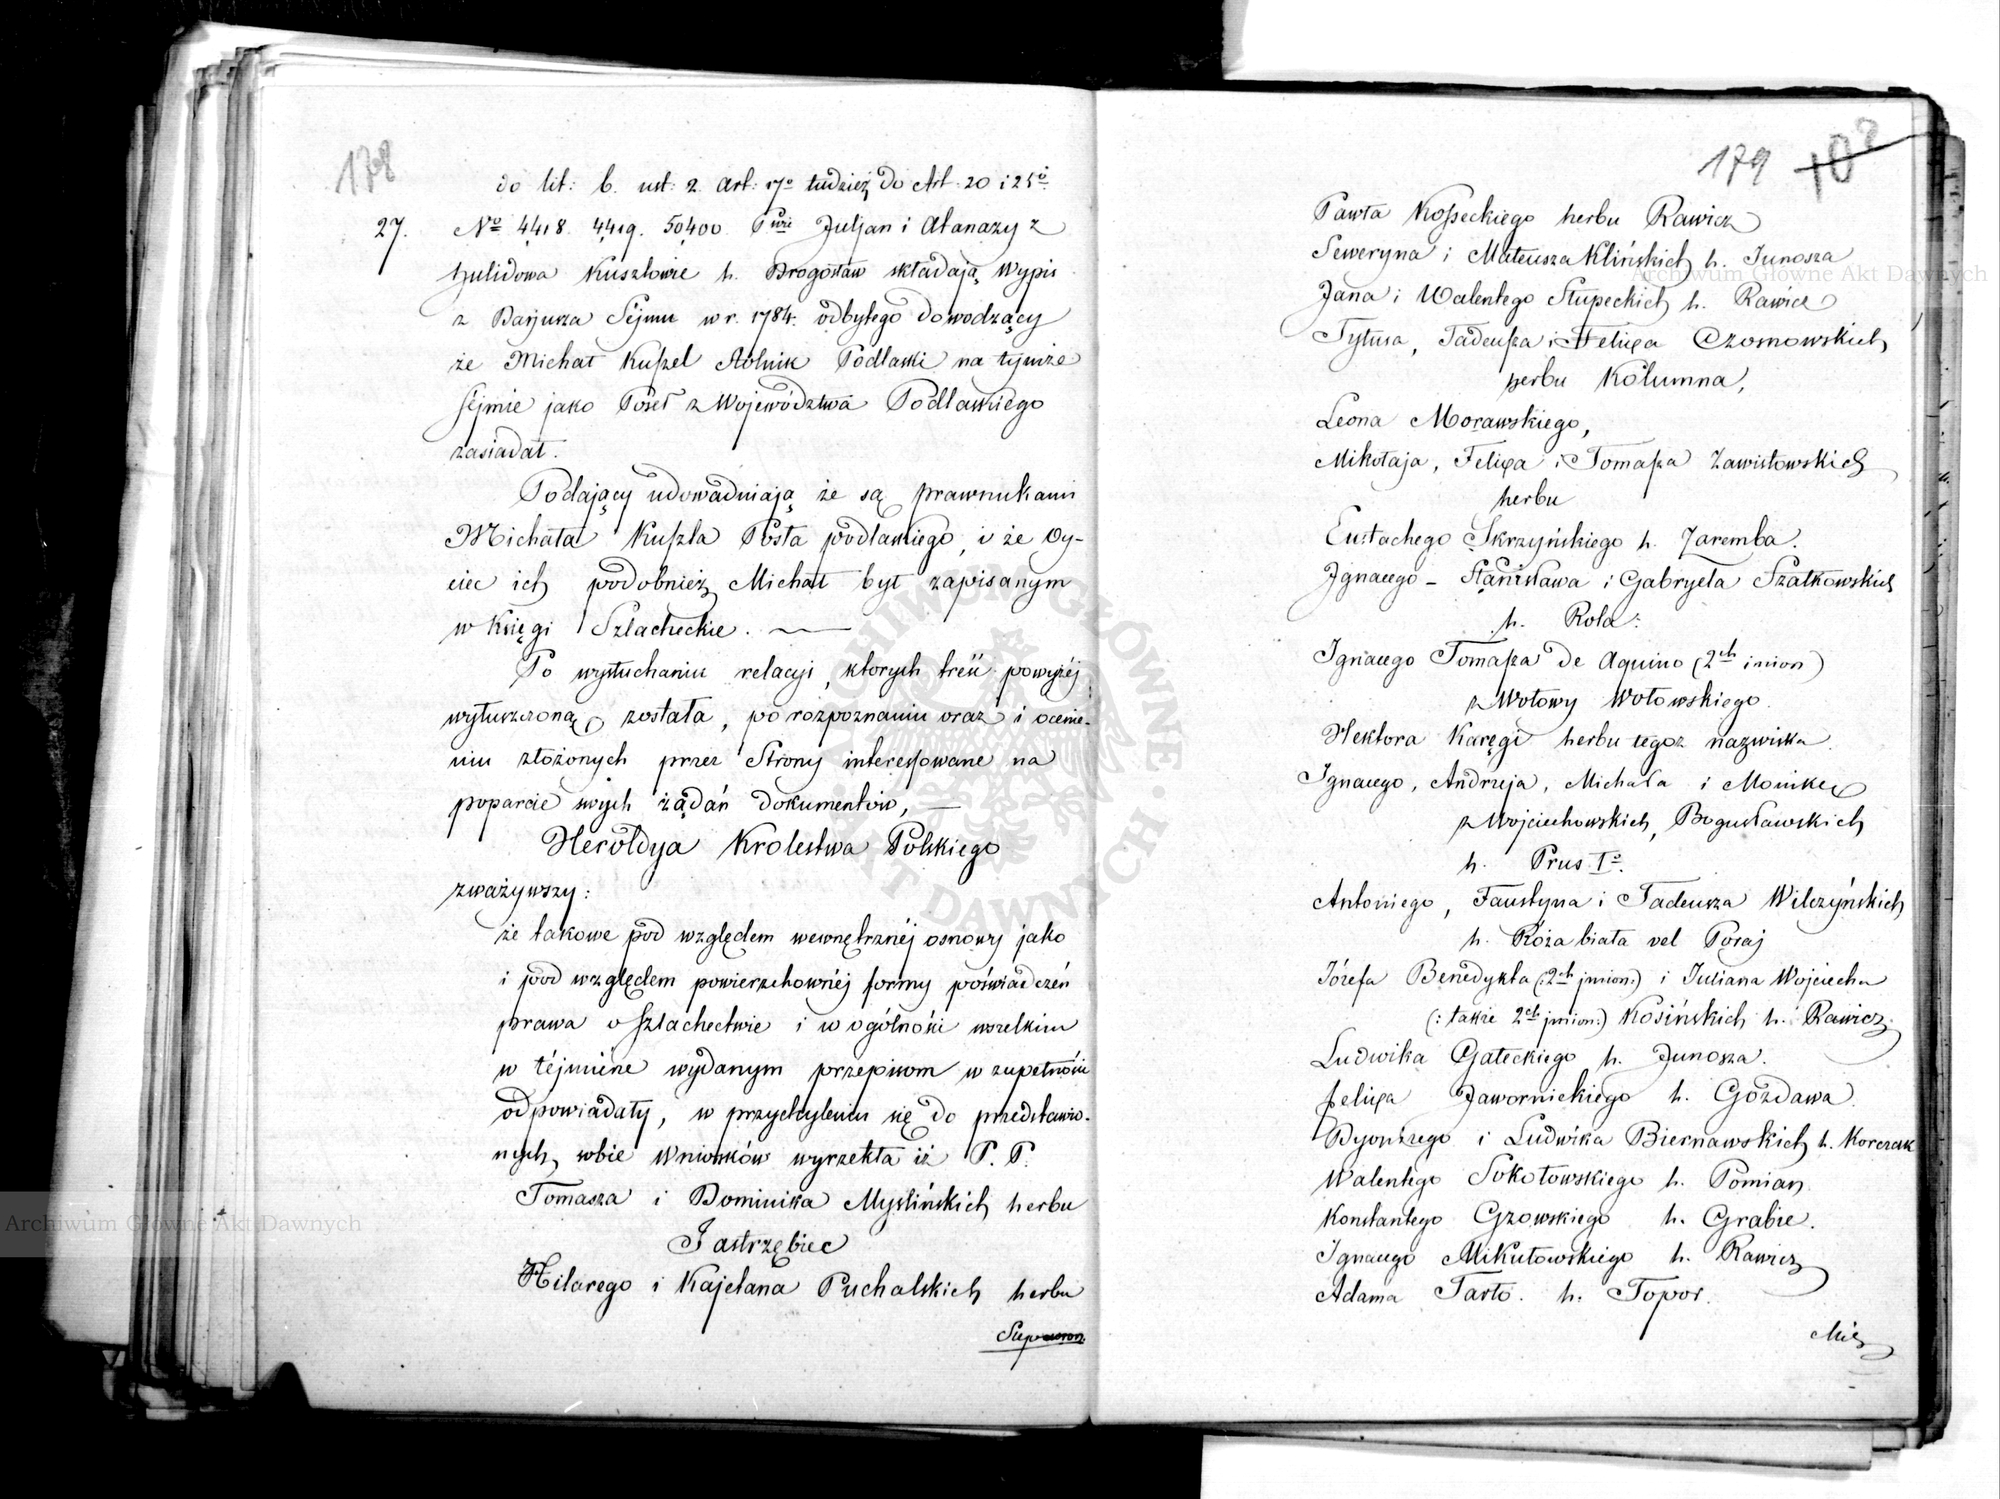 178
do lit: b. ust: 2. art: 17º tudzież do Art: 20 i 25º
27. Nº 4418. 4419. 50400. Pwie Juljan i Atanazy z
Hulidowa Kuszlowie h. Drogosław składają wypis
z Daryusza Sejmu w r. 1784. odbytego dowodzący
że Michał Kuszel Stolnik Podlaski na tymże
sejmie jako Poseł z Województwa Podlaskiego
zasiadał.
Podający udowadniają że są prawnukami
Michała Kuszla Posła podlaskiego, i że Oy-
ciec ich podobnież Michał był zapisanym
w Księgi Szlacheckie.
Po wysłuchaniu relacyi, ktorych treść powyżéj
wyłuszczoną została, po rozpoznaniu oraz i ocenie-
niu złożonych przez Strony interessowane na
poparcie swych żądań dokumentów,
Heroldya Krolestwa Polskiego
zważywszy:
że takowe pod względem wewnętrznéj osnowy jako
i pod względem powierzchownéj formy poświadczeń
prawa o szlachectwie i w ogólności wszelkim
w téjmiéne wydanym przepisom w zupełności
odpowiadały, w przychyleniu się do przedstawio-
nych sobie Wniosków wyrzekła iż P. P.
Tomasza i Dominika Myślińskich herbu
Jastrzębiec
Hilarego i Kajetana Puchalskich herbu
179 108
Pawła Kosseckiego herbu Rawicz
Seweryna i Mateusza Klińskich h. Junosza
Jana i Walentego Słupeckich h. Rawicz
Tytusa, Tadeusza i Felixa Czosnowskich
herbu Kolumna,
Leona Morawskiego,
Mikołaja, Felixa i Tomasza Zawistowskich
herbu
Eustachego Skrzyńskiego h. Zaremba.
Ignacego - Stanisława i Gabryela Szatkowskich
h. Rola:
Ignacego Tomasza de Aquino (2ch imion)
z Wołowy Wołowskiego.
Hektora Karęgi herbu tegoż nazwiska
Ignacego, Andrzeja, Michała i Moniki
z Wojciechowskich, Bogusławskich
h. Prus Iº.
Antoniego, Faustyna i Tadeusza Wilczyńskich
h. Róża biała vel Poraj
Józefa Benedykta (:2ch jmion:) i Juliana Wojciecha
(: także 2ch jmion:) Kosińskich h. Rawicz
Ludwika Gałeckiego h. Junosza.
Felixa Jawornickiego h. Gozdawa.
Dyonizego i Ludwika Biernawskich h. Korczak
Walentego Sokołowskiego h. Pomian.
Konstantego Gzowskiego h. Grabie.
Ignacego Mikułowskiego h. Rawicz
Adama Tarło. h. Topor.
Archiwum Główne Akt Dawnych
Archiwum Główne Akt Dawnych
ARCHIWUM GŁÓWNE AKT DAWNYCH